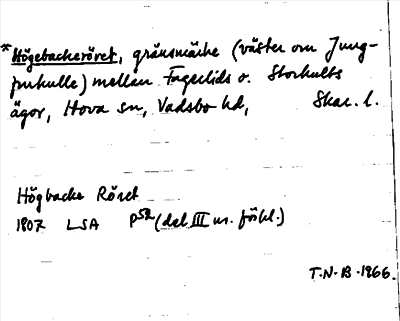 *Högebackeröret, gränsmärke (väster om Jung-
frukulle) mellan Fagerlids o. Storhults
ägor, Hova sn, Vadsbo hd, Skar. l.
Högbacke Röret
1807 LSA P52 (del III m. förkl.)
T.N-B-1966.